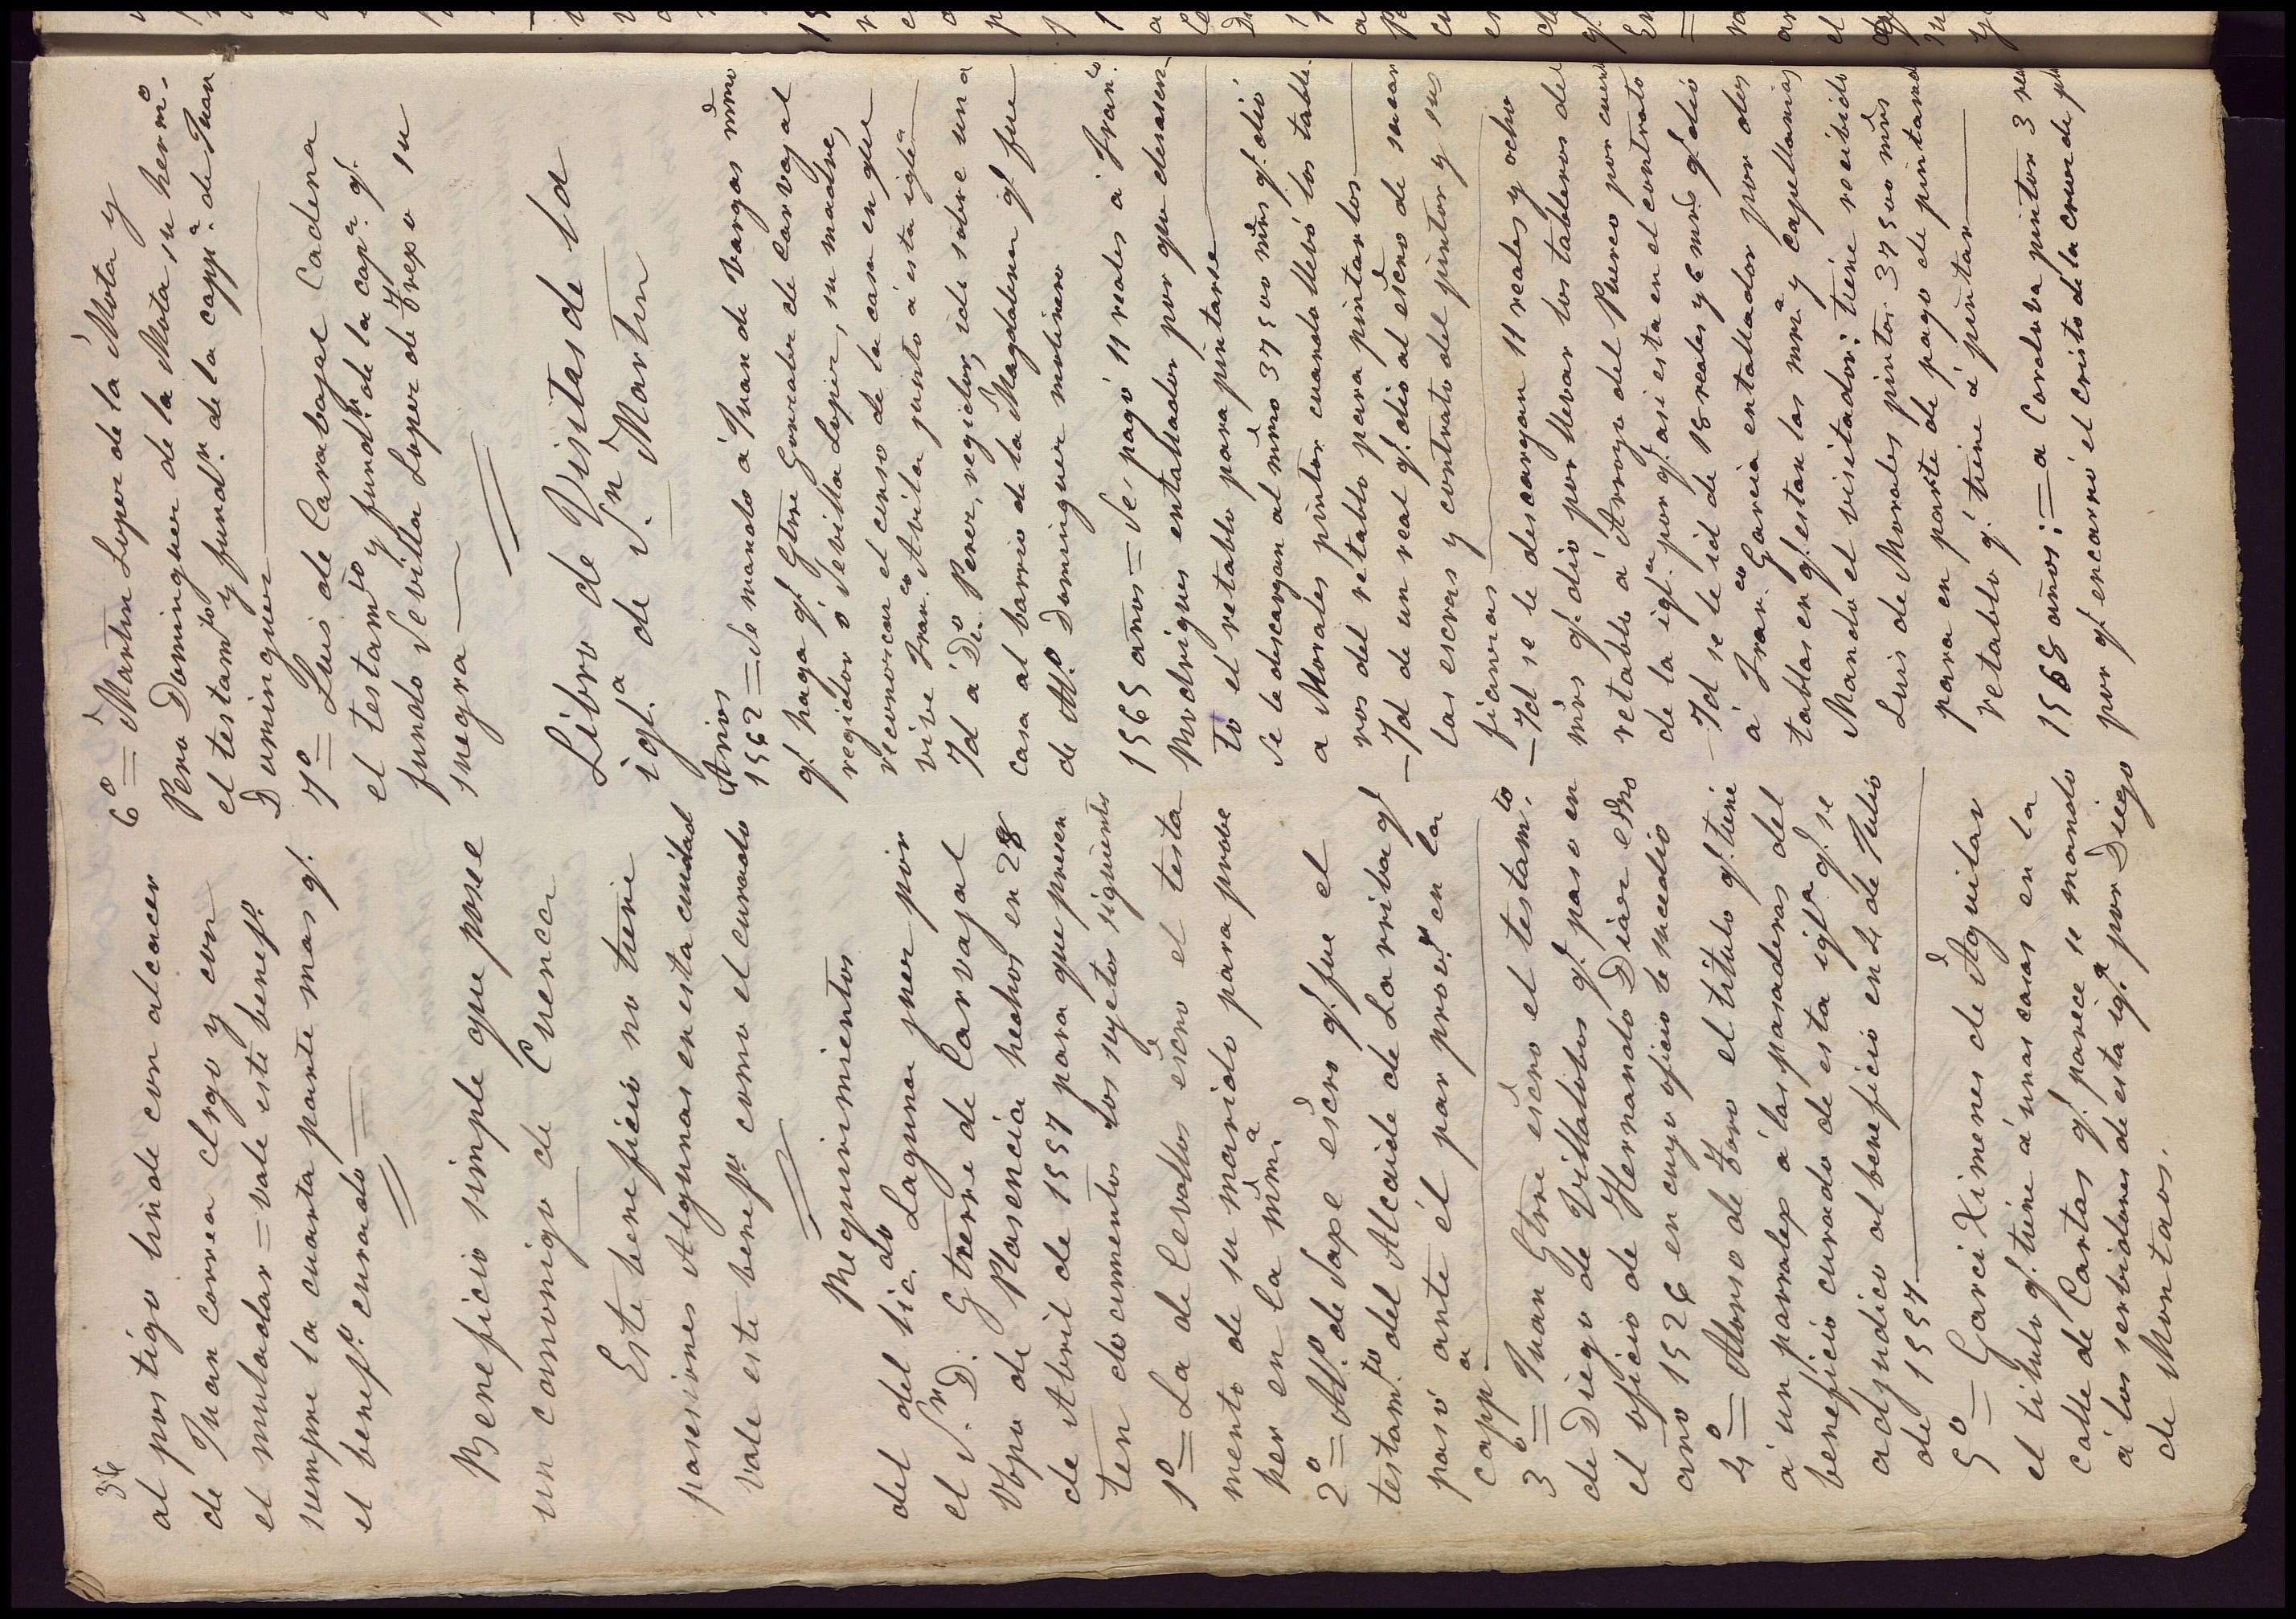 36
al postigo linde con alcacer
de Juan correa clrgo y con
el muladar = vale este benefº.
siempre la cuarta parte mas q.
el benefº. curado
Beneficio simple que posee
un canonigo de Cuenca
Este beneficio no tiene
posesiones Algunas en esta ciudad
vale este benefº. como el curado
Requirimientos
del del licdo. Laguna juez por
el Sr. D. Gtrerre de Carvajal
Obpo de Plasencia hechos en 28
de Abril de 1557 para que presen
ten documentos los sujetos siguientes
1º = La de Cevallos escro el testa
mento de su marido para probe
her en la mma.
2º = Alº. de Sape escro q. fue el
testamto. del Alcaide de Larriba q.
pasó ante él par proer. en la
cappa.
3º = Juan Gtrre escro el testamto.
de Diego de Villalobos q. paso en
el oficio de Hernando Diaz esno
año 1526 en cuyo oficio le sucedio
4º = Alonso de Toro el titulo q. tiene
á un parralex á las pasaderas del
beneficio curado de esta igla. q. se
adjudico al beneficio en 4 de Julio
de 1557
5º = Garci Ximenes de Aguilar
el titulo q. tiene á unas casas en la
calle de Cartas q. parece se mando
á los servidores de esta iga. por Diego
de Montaos.
6º = Martin Lopez de la Mota y
Pero Dominguez de la Mota, su hermº.
el testamto. y fundn. de la cappa. de Juan
Dominguez
7º = Luis de Carabajal Cadena
el testamto y fundn. de la capa. q.
fundo Sevilla Lopez de Trexo su
suegra
Libro de Visitas de la
igla. de Sn. Martin
Años
1552 = Se mando á Juan de Vargas mmo
q. haga q. Gtrre Gonzalez de Carvajal
regidor o Sevilla Lopez, su madre,
reconozcan el censo de la casa en que
vive Franco. Avila junto á esta iglea
Id á Do. Perez, regidor, ide sobre una
casa al barrio de la Magdalena q. fue
de Alº. Dominguez molinero
1565 años = Se pagó 11 reales á Franco.
Rodrigues entallador por que desasen
to el retablo para pintarse
Se le descargan al mmo 37500 mrs q. dió
a Morales pintor cuando llebó los table.
ros del retablo para pintarlos
— Id de un real q. dio al escno de sacar
las escras y contrato del pintor y sus
fianzas
— Id se le descargan 11 reales y ocho
mrs q. dió por llevar los tableros del
retablo á Arroyo del Puerco por cuenta
de la igla por q. asi esta en el contrato
— Id se le id de 18 reales y 6 mrs q. dió
á Franco. Garcia entallador por dos
tablas en q. estan las mmas y capellanias
Mando el visitador: tiene recibido
Luis de Morales pintor 37500 mrs
para en parte de pago de pintar el
retablo q. tiene á pintar
1568 años: = a Cordova pintor 3 rea
por q. encarnó el cristo de la cruz de pla